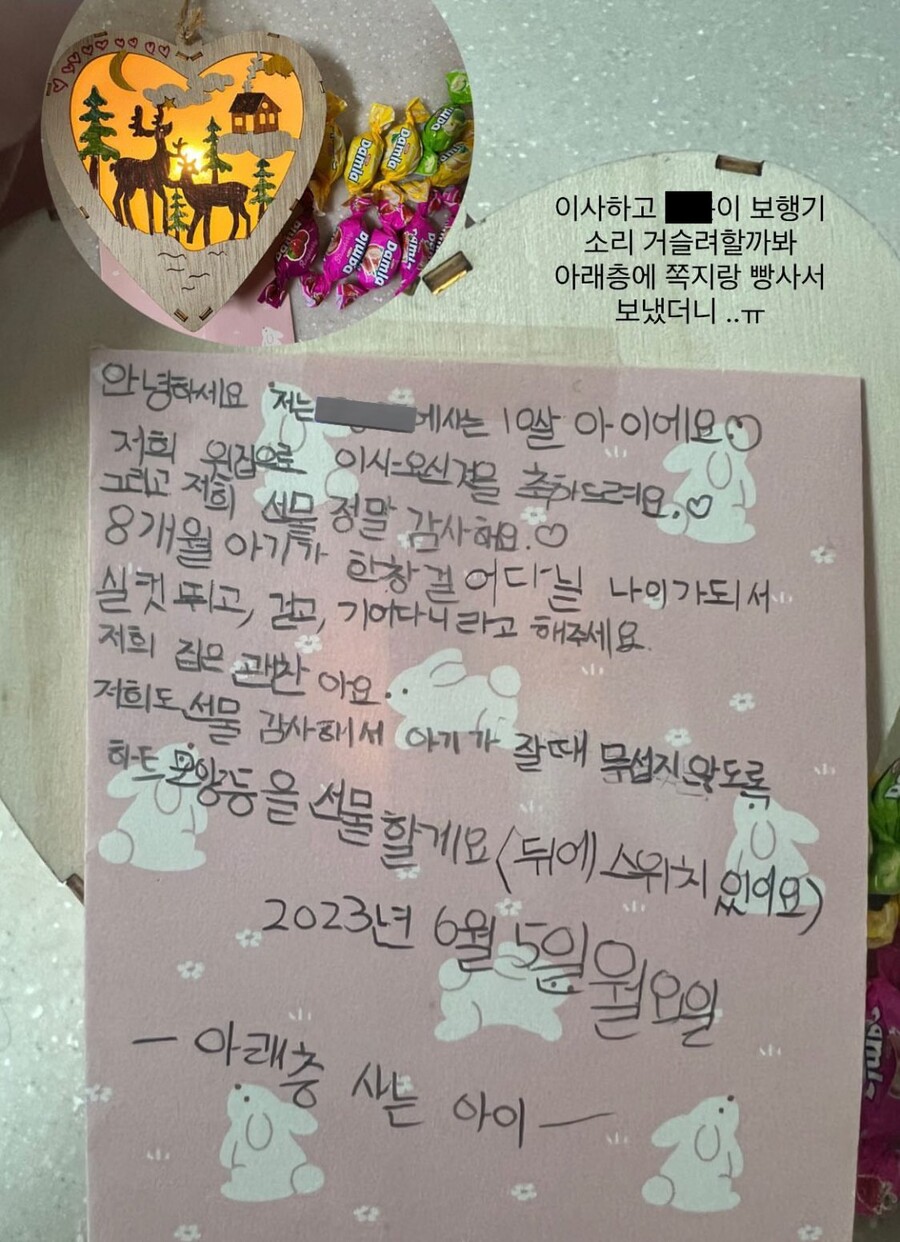 이사하고 이 보행기
소리 거슬려할까봐
아래층에 쪽지랑 빵사서
보냈더니 ..ㅠ
Damla
Damla
Damla
Damla
Damla
안녕하세요 저는 에사는 10살 아이에요♡
저희 윗집으로 이사오신것을 축하드려요.♡
그리고 저희 선물 정말 감사해요.♡
8개월 아기가 한창 걸어다닐 나이가되서
실컷 뛰고, 걷고, 기어다니라고 해주세요.
저희 집은 괜찬아요.
저희도 선물 감사해서 아기가 잘때 무섭지않도록
하트모양등을 선물할게요(뒤에 스위치 있어요)
2023년 6월 5일 월요일
— 아래층 사는 아이 —